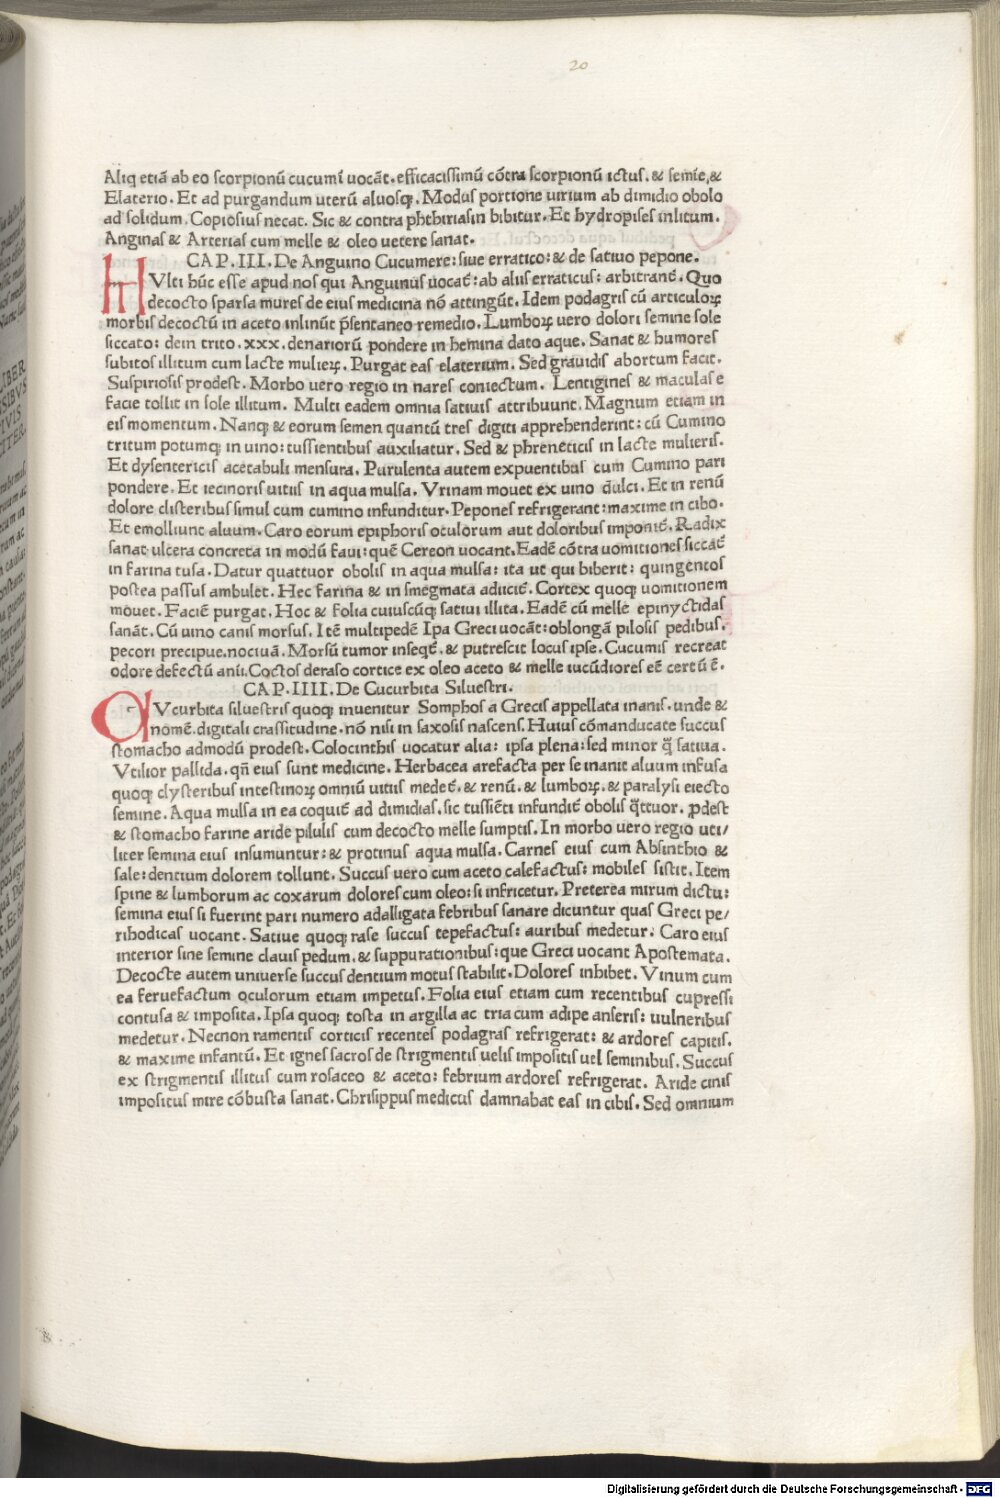 20
Aliq etiā ab eo scorpionū cucumī uocāt. efficacissimū cōtra scorpionū ictus. & semīe, &
Elaterio. Et ad purgandum uterū aluosq;. Modus portione uirium ab dimidio obolo
ad solidum. Copiosius necat. Sic & contra phthiriasin bibitur. Et hydropises inlitum.
Anginas & Arterias cum melle & oleo uetere sanat.
CAP. III. De Anguino Cucumere: siue erratico: & de satiuo pepone.
MVlti hūc esse apud nos qui Anguinus uocat̄: ab aliis erraticus: arbitrant̄. Quo
decocto sparsa mures de eius medicina nō attingūt. Idem podagris cū articuloꝝ
morbis decoctū in aceto inlinūt p̄sentaneo remedio. Lumboꝝ uero dolori semine sole
siccato: dein trito. xxx. denariorū pondere in hemina dato aque. Sanat & humores
subitos illitum cum lacte mulieꝝ. Purgat eas elaterium. Sed grauidis abortum facit.
Suspiriosis prodest. Morbo uero regio in nares coniectum. Lentigines & maculas e
facie tollit in sole illitum. Multi eadem omnia satiuis attribuunt. Magnum etiam in
eis momentum. Nanq; & eorum semen quantū tres digiti apprehenderint: cū Cumino
tritum potumq; in uino: tussientibus auxiliatur. Sed & phreneticis in lacte mulieris.
Et dysentericis acetabuli mensura. Purulenta autem expuentibus cum Cumino pari
pondere. Et iecinoris uitiis in aqua mulsa. Vrinam mouet ex uino dulci. Et in renū
dolore clisteribus simul cum cumino infunditur. Pepones refrigerant: maxime in cibo.
Et emolliunt aluum. Caro eorum epiphoris oculorum aut doloribus imponit̄. Radix
sanat ulcera concreta in modū faui: quē Cereon uocant. Eadē cōtra uomitiones siccat̄
in farina tusa. Datur quattuor obolis in aqua mulsa: ita ut qui biberit: quingentos
postea passus ambulet. Hec farina & in smegmata adiicit̄. Cortex quoq; uomitionem
mouet. Faciē purgat. Hoc & folia cuiuscūq; satiui illita. Eadē cū melle epinyctidas
sanāt. Cū uino canis morsus. Itē multipedē Ipa Greci uocāt: oblongā pilosis pedibus.
pecori precipue. nociuā. Morsū tumor inseqt̄. & putrescit locus ipse. Cucumis recreat
odore defectū anīi. Coctos deraso cortice ex oleo aceto & melle iucūdiores eē certū ē.
CAP. IIII. De Cucurbita Siluestri.
CVcurbita siluestris quoq; inuenitur Somphos a Grecis appellata inanis. unde &
nomē. digitali crassitudine. nō nisi in saxosis nascens. Huius cōmanducate succus
stomacho admodū prodest. Colocinthis uocatur alia: ipsa plena: sed minor q̄ satiua.
Vtilior pallida. qn̄ eius sunt medicine. Herbacea arefacta per se inanit aluum infusa
quoq; clysteribus intestinoꝝ omniū uitiis medet̄. & renū. & lumboꝝ. & paralysi eiecto
semine. Aqua mulsa in ea coquit̄ ad dimidias. sic tussiēti infundit̄ obolis q̄ttuor. ꝓdest
& stomacho farine aride pilulis cum decocto melle sumptis. In morbo uero regio uti/
liter semina eius insumuntur: & protinus aqua mulsa. Carnes eius cum Absinthio &
sale: dentium dolorem tollunt. Succus uero cum aceto calefactus: mobiles sistit. Item
spine & lumborum ac coxarum dolores cum oleo: si infricetur. Preterea mirum dictu:
semina eius si fuerint pari numero adalligata febribus sanare dicuntur quas Greci pe/
rihodicas uocant. Satiue quoq; rase succus tepefactus: auribus medetur. Caro eius
interior sine semine clauis pedum. & suppurationibus: que Greci uocant Apostemata.
Decocte autem uniuerse succus dentium motus stabilit. Dolores inhibet. Vinum cum
ea feruefactum oculorum etiam impetus. Folia eius etiam cum recentibus cupressi
contusa & imposita. Ipsa quoq; tosta in argilla ac tria cum adipe anseris: uulneribus
medetur. Necnon ramentis corticis recentes podagras refrigerat: & ardores capitis.
& maxime infantū. Et ignes sacros de strigmentis uelis impositis uel seminibus. Succus
ex strigmentis illitus cum rosaceo & aceto: febrium ardores refrigerat. Aride cinis
impositus mire cōbusta sanat. Chrisippus medicus damnabat eas in cibis. Sed omnium
Digitalisierung gefördert durch die Deutsche Forschungsgemeinschaft - DFG